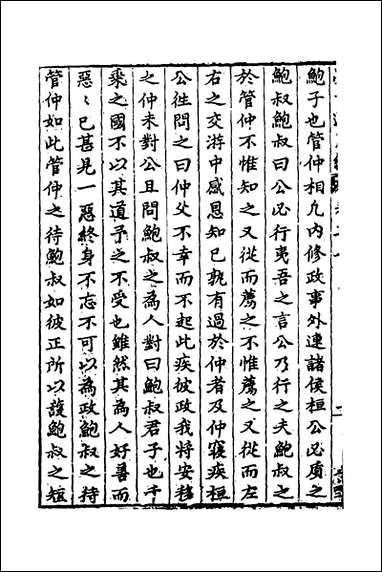 鮑子也管仲相九內修政事外連諸侯桓公必質之
鮑叔鮑叔曰公必行夷吾之言公乃行之夫鮑叔之
於管仲不惟知之又從而薦之不惟薦之又從而左
右之交游中感恩知己孰有過於仲者及仲寢疾桓
公徃問之曰仲父不幸而不起此疾彼政我將安移
之仲未對公且問鮑叔之為人對曰鮑叔君子也千
乘之國不以其道予之不受也雖然其為人好善而
惡〻已甚見一惡終身不忘不可以為政鮑叔之待
管仲如此管仲之待鮑叔如彼正所以護鮑叔之短